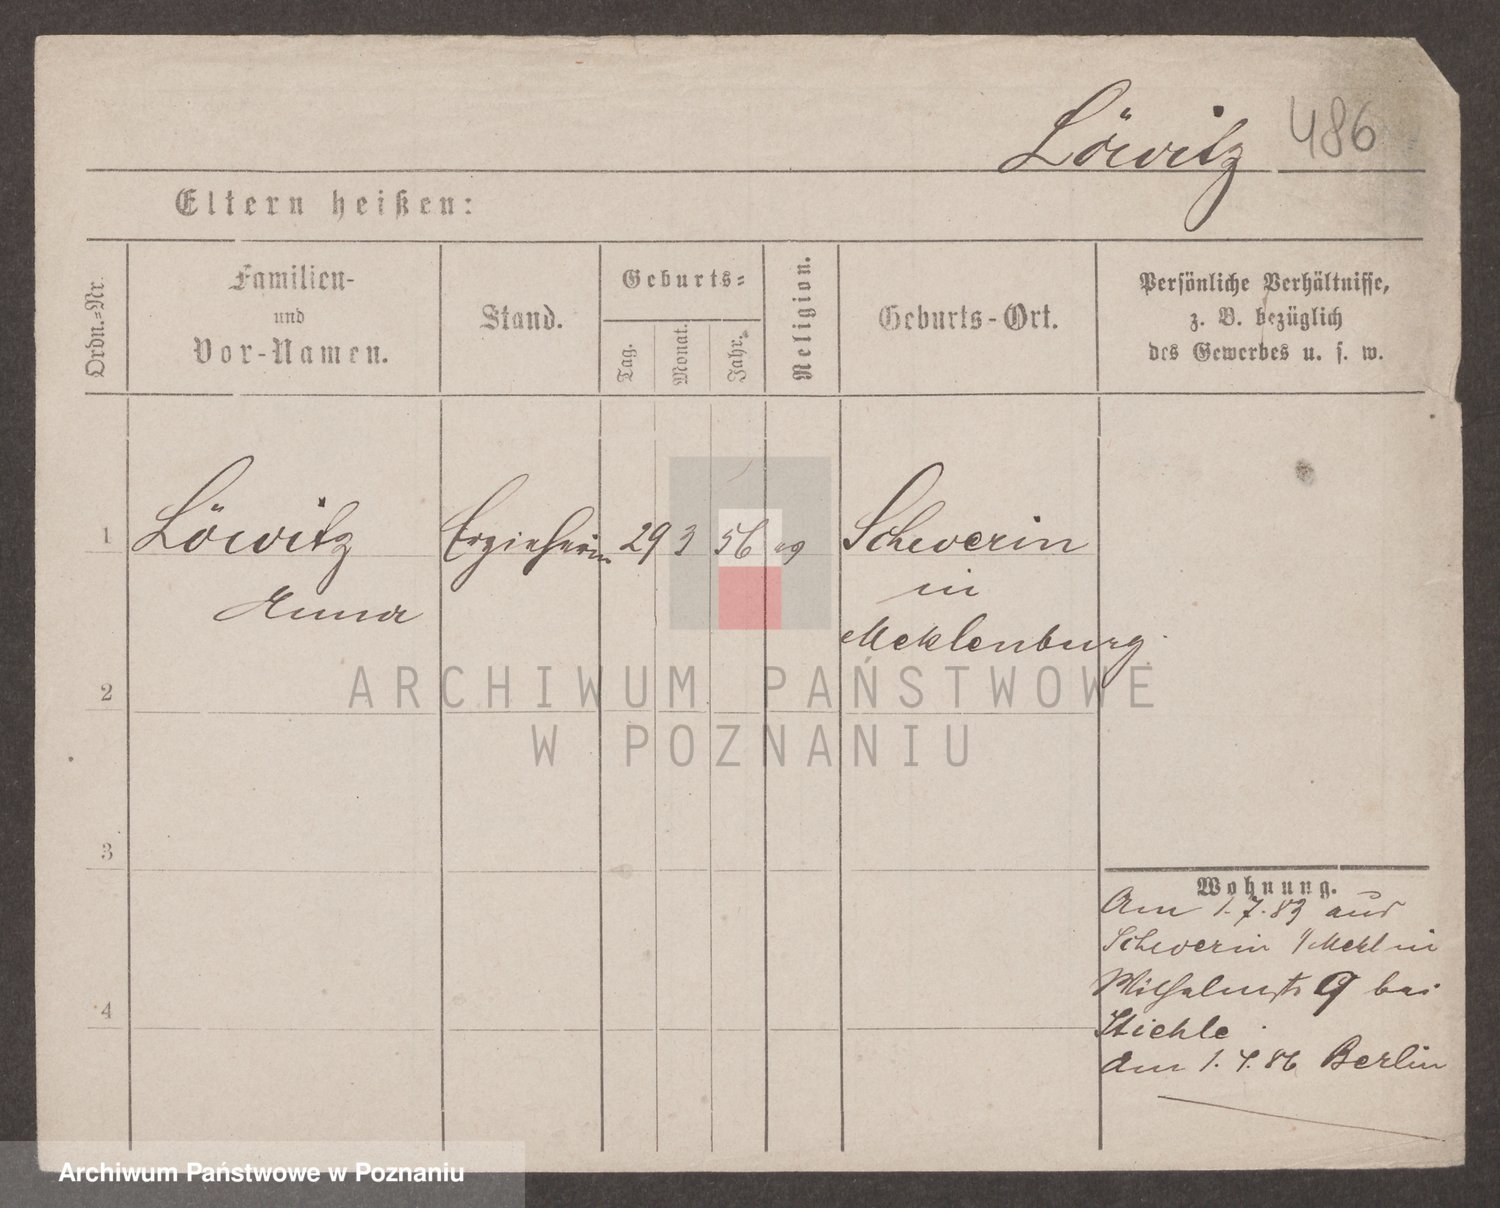 Löwitz 486
Eltern heißen:
Ordn.=Nr.
Familien-
und
Vor-Namen.
Stand.
Geburts=
Tag.
Monat.
Jahr.
Religion.
Geburts-Ort.
Persönliche Verhältnisse,
z. B. bezüglich
des Gewerbes u. s. w.
1 Löwitz Erzieherin 29 3 56 ev Schwerin
Anna in
Meklenburg.
2
ARCHIWUM PAŃSTWOWE
W POZNANIU
3
Wohnung.
Am 1.7.83 aus
Schwerin i/Mekl in
4 Wilhelmstr 9 bei
Stiehle.
Am 1.4.86 Berlin
Archiwum Państwowe w Poznaniu